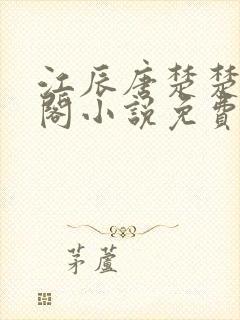 江辰唐楚楚
閣小說免費
茅蘆